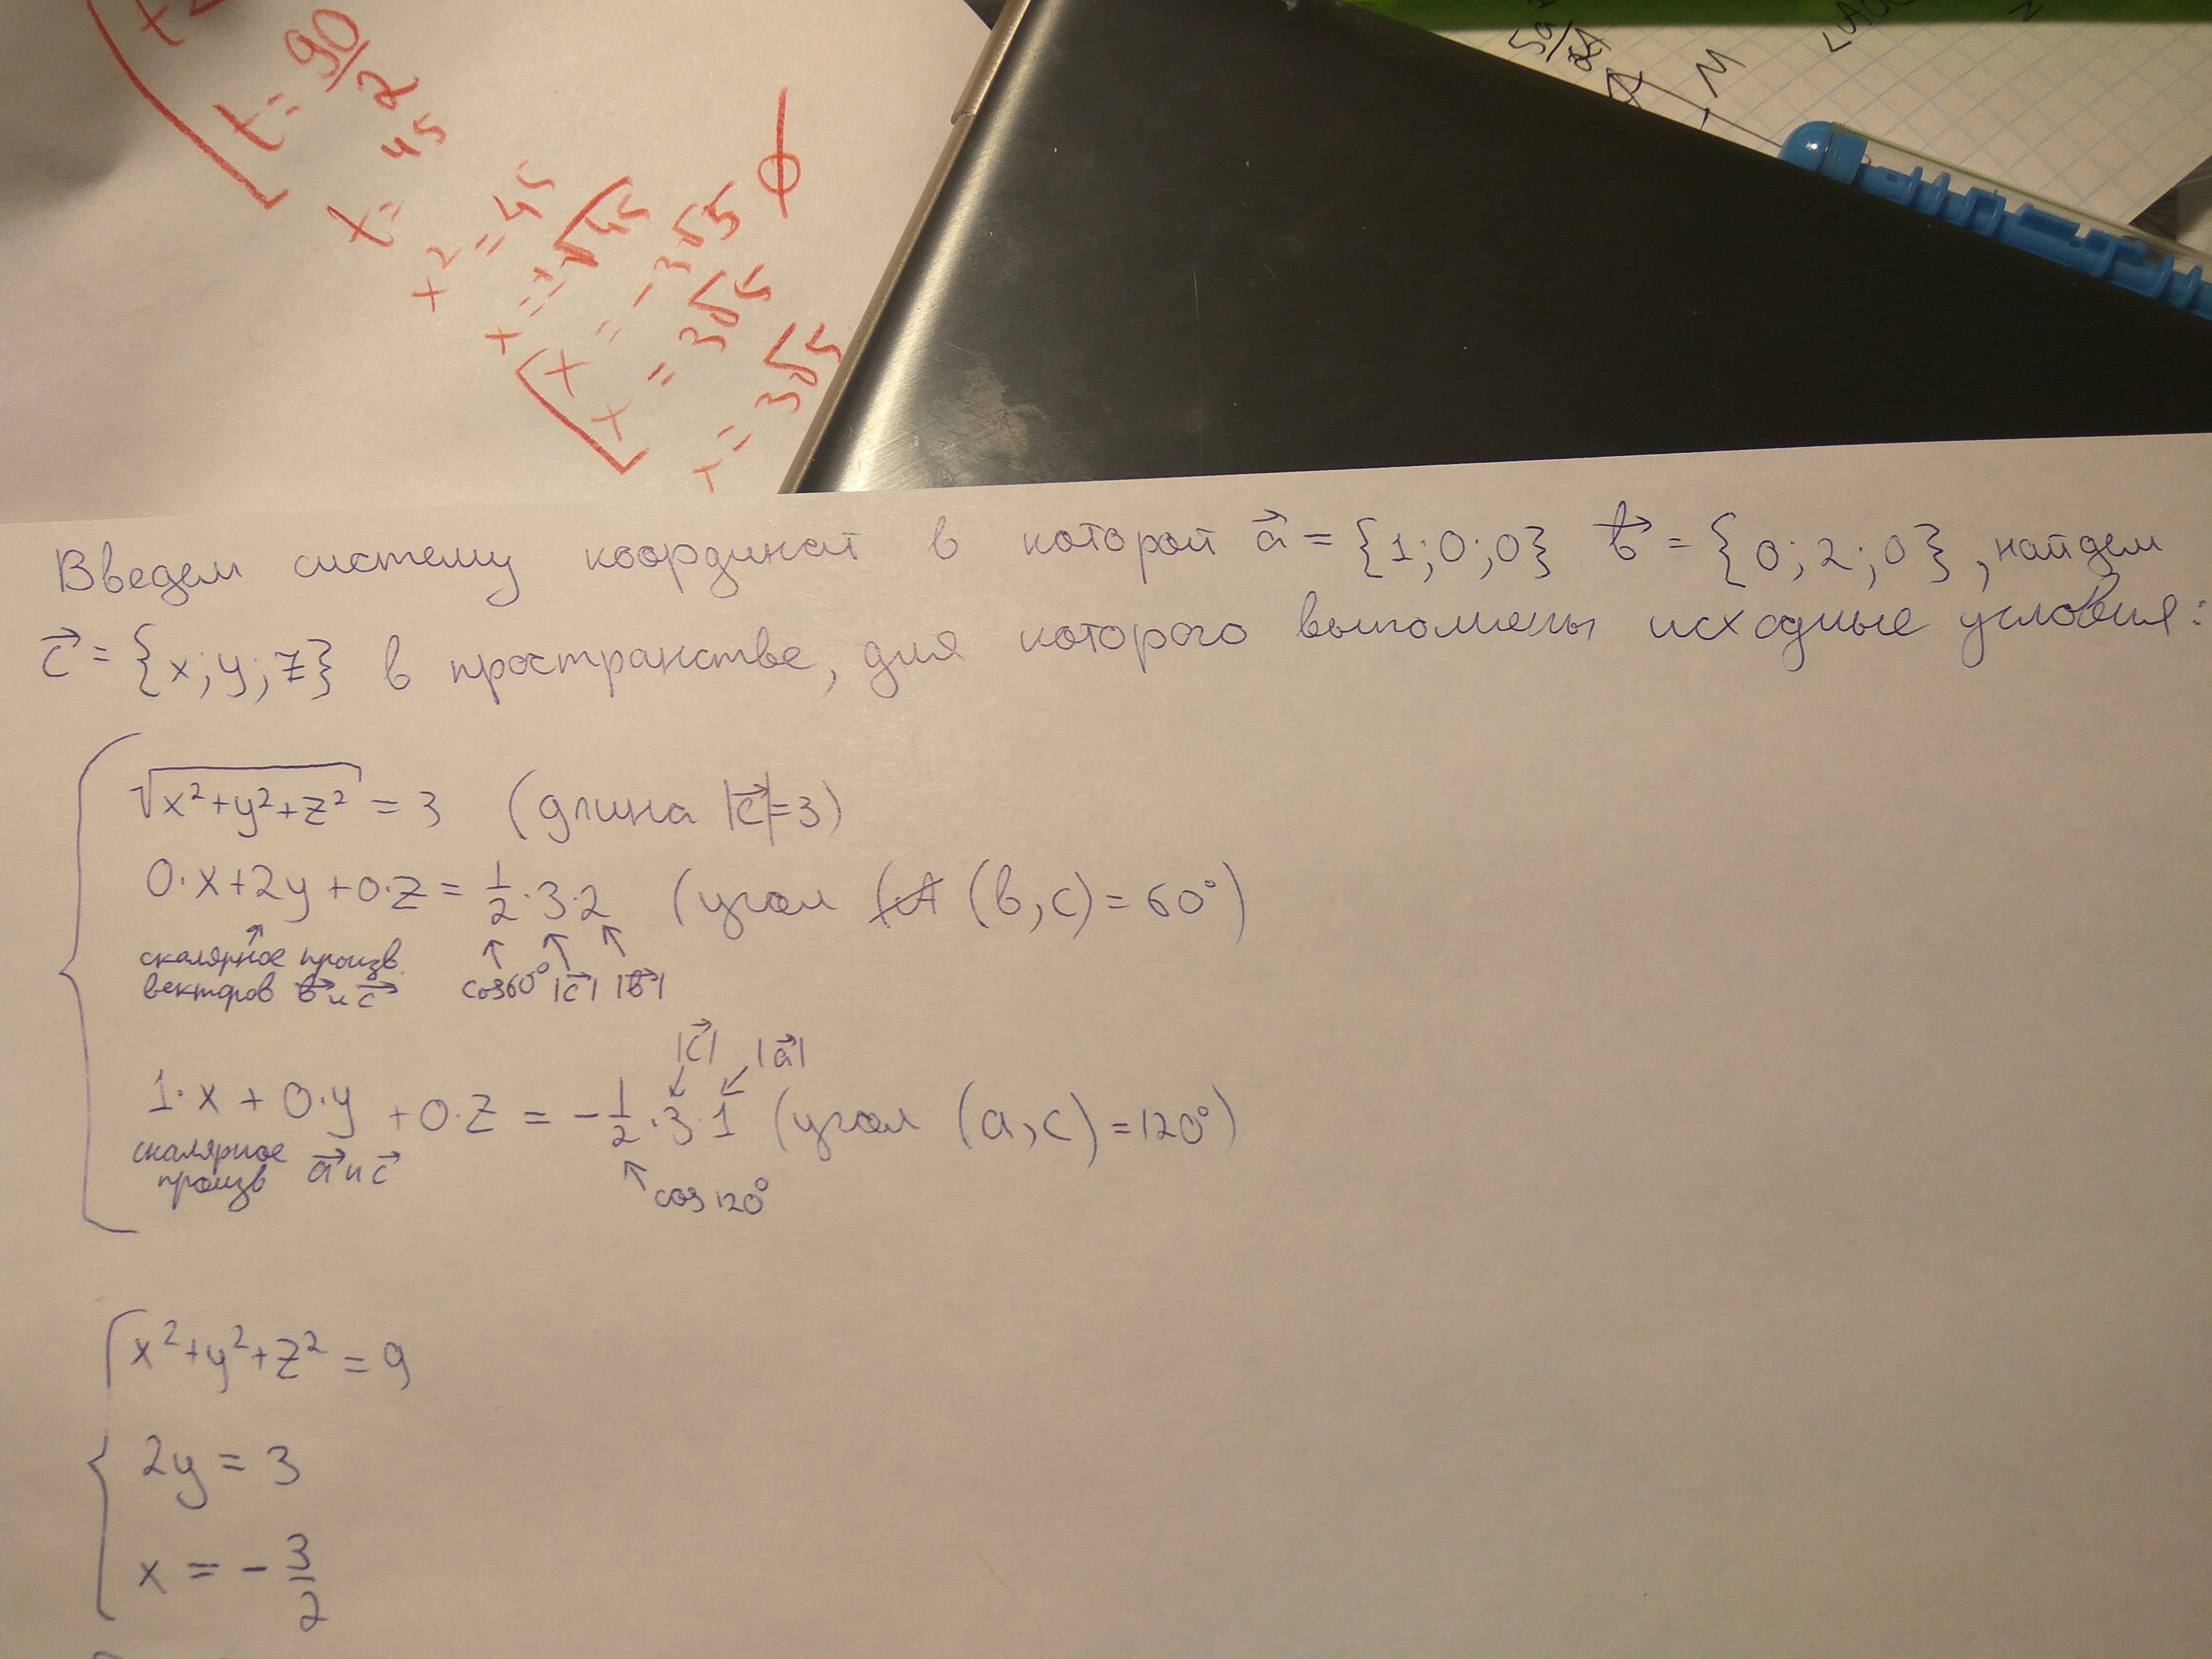 t = 90/2
t = 45
x² = 45
x = ±√45
x = -3√5 ϕ
x = 3√5
= 3√5
M
Введем систему координат в которой a⃗ = {1;0;0} b⃗ = {0;2;0}, найдем
c⃗ = {x;y;z} в пространстве, для которого выполнены исходные условия:
√x²+y²+z² = 3 (длина |c⃗|=3)
0·x+2y+0·z = 1/2·3·2 (угол (b,c)=60°)
скалярное произв.
векторов b⃗ и c⃗ cos60° |c⃗| |b⃗|
|c⃗| |a⃗|
1·x + 0·y + 0·z = -1/2·3·1 (угол (a,c)=120°)
скалярное
произв a⃗ и c⃗
cos 120°
x²+y²+z² = 9
2y = 3
x = -3/2